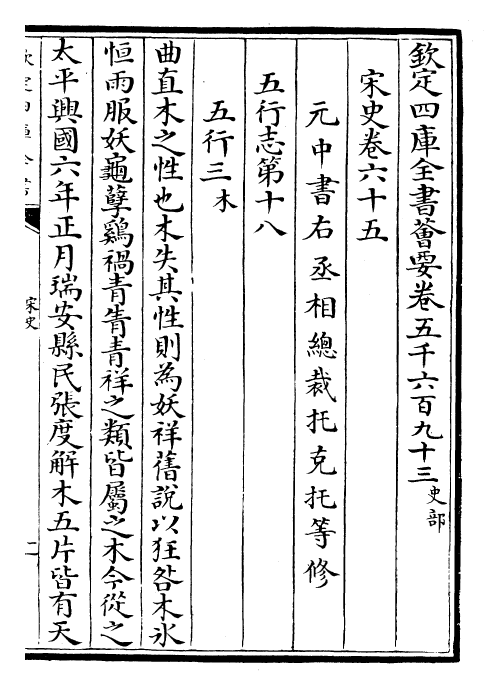 欽定四庫全書薈要卷五千六百九十三史部
宋史卷六十五
元中書右丞相總裁托克托等修
五行志第十八
五行三木
曲直木之性也木失其性則為妖祥舊說以狂咎木冰
恒雨服妖龜孽鷄禍青眚青祥之類皆屬之木今從之
太平興國六年正月瑞安縣民張度解木五片皆有天
宋史